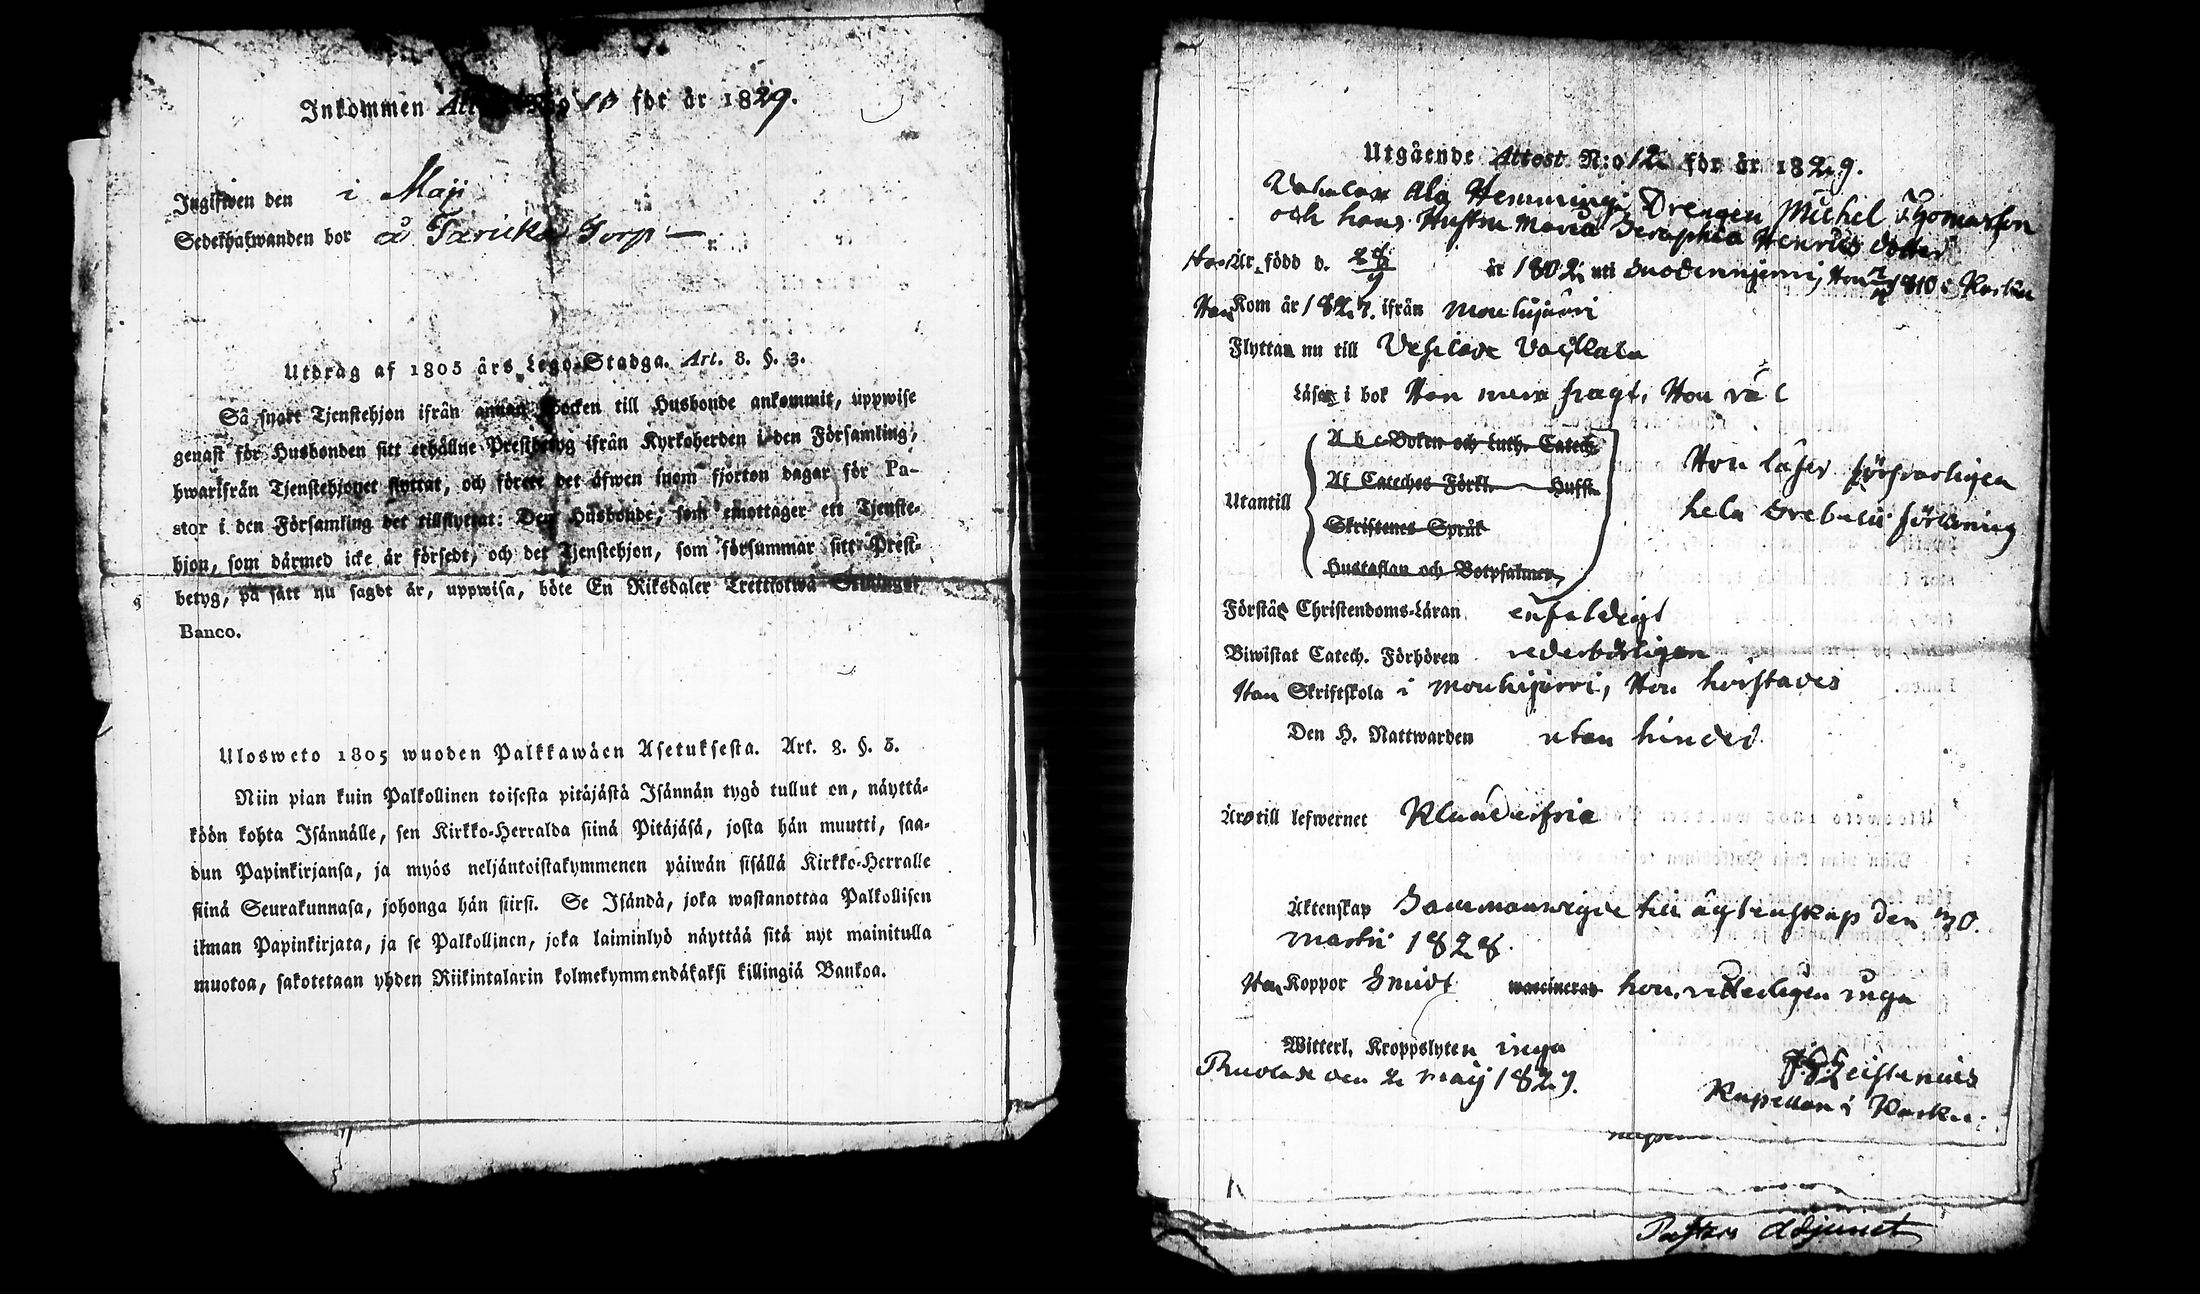 Inkommen Att No 13 för år 1829.
Ingifwen den i Maji
Sedelhafwanden bor å Torp
Utdrag af 1805 års Lego-Stadga. Art. 8. §. 3.
Så snart Tjenstehjon ifrån annan Socken till Husbonde ankommit, uppwise
genast för Husbonden sitt erhållne Prestbetyg ifrån Kyrkoherden i den Församling,
hwarifrån Tjenstehjonet flyttat, och förete det äfwen inom fjorton dagar för Pa-
stor i den Församling det tillflyttat: Den Husbonde, som emottager ett Tjenste-
hjon, som därmed icke är försedt, och det Tjenstehjon, som försummar sitt Prest-
betyg, på sätt nu sagdt är, uppwisa, böte En Riksdaler Trettiotwå Skillingar
Banco.
Ulosweto 1805 wuoden Palkkawäen Asetuksesta. Art. 8. §. 3.
Niin pian kuin Palkollinen toisesta pitäjästä Isännän tygö tullut on, näyttä-
köön kohta Isännälle, sen Kirkko-Herralda siinä Pitäjäsä, josta hän muutti, saa-
dun Papinkirjansa, ja myös neljäntoistakymmenen päiwän sisällä Kirkko-Herralle
siinä Seurakunnasa, johonga hän siirsi. Se Isändä, joka wastanottaa Palkollisen
ilman Papinkirjata, ja se Palkollinen, joka laiminlyö näyttää sitä nyt mainitulla
muotoa, sakotetaan yhden Riikintalarin kolmekymmendäkaksi killingiä Bankoa.
Utgående Attest N:o 12 för år 1829.
Ala Hemmings Drengen Michel Thomasson
och hans Hustru Maria Seraphia Henrics dotter
Han Är född d. 28/9 år 1802 uti Suodenniemi, Hon 1810 i Karku
Han Kom år 1827 ifrån Mouhijärvi
Flytta nu till Vesilax
Läser i bok Han svagt, Hon väl
Utantill
A b c-Boken och Luth. Catech.
Af Cateches Förkl. Hufst.
Skriftenes Språk
Hustaflan och Botpsalmen,
Hon läser försvarligen
hela Grebelii förklaring
Förstår Christendoms-Läran enfaldigt
Biwistat Catech. Förhören vederbörligen
Han Skriftskola i Mouhijärvi, Hon härstädes
Den H. Nattwarden utan hinder
Äro till lefwernet Klanderfria
Äktenskap Sammanvigde till ägtenskap den 30.
Martii 1828.
Han Koppor haft waccinerad hon, vitterligen inga
Witterl. Kroppslyten inga
den 2 Maij 1829.
Kapellan i Karku.
Pastors Adjunct